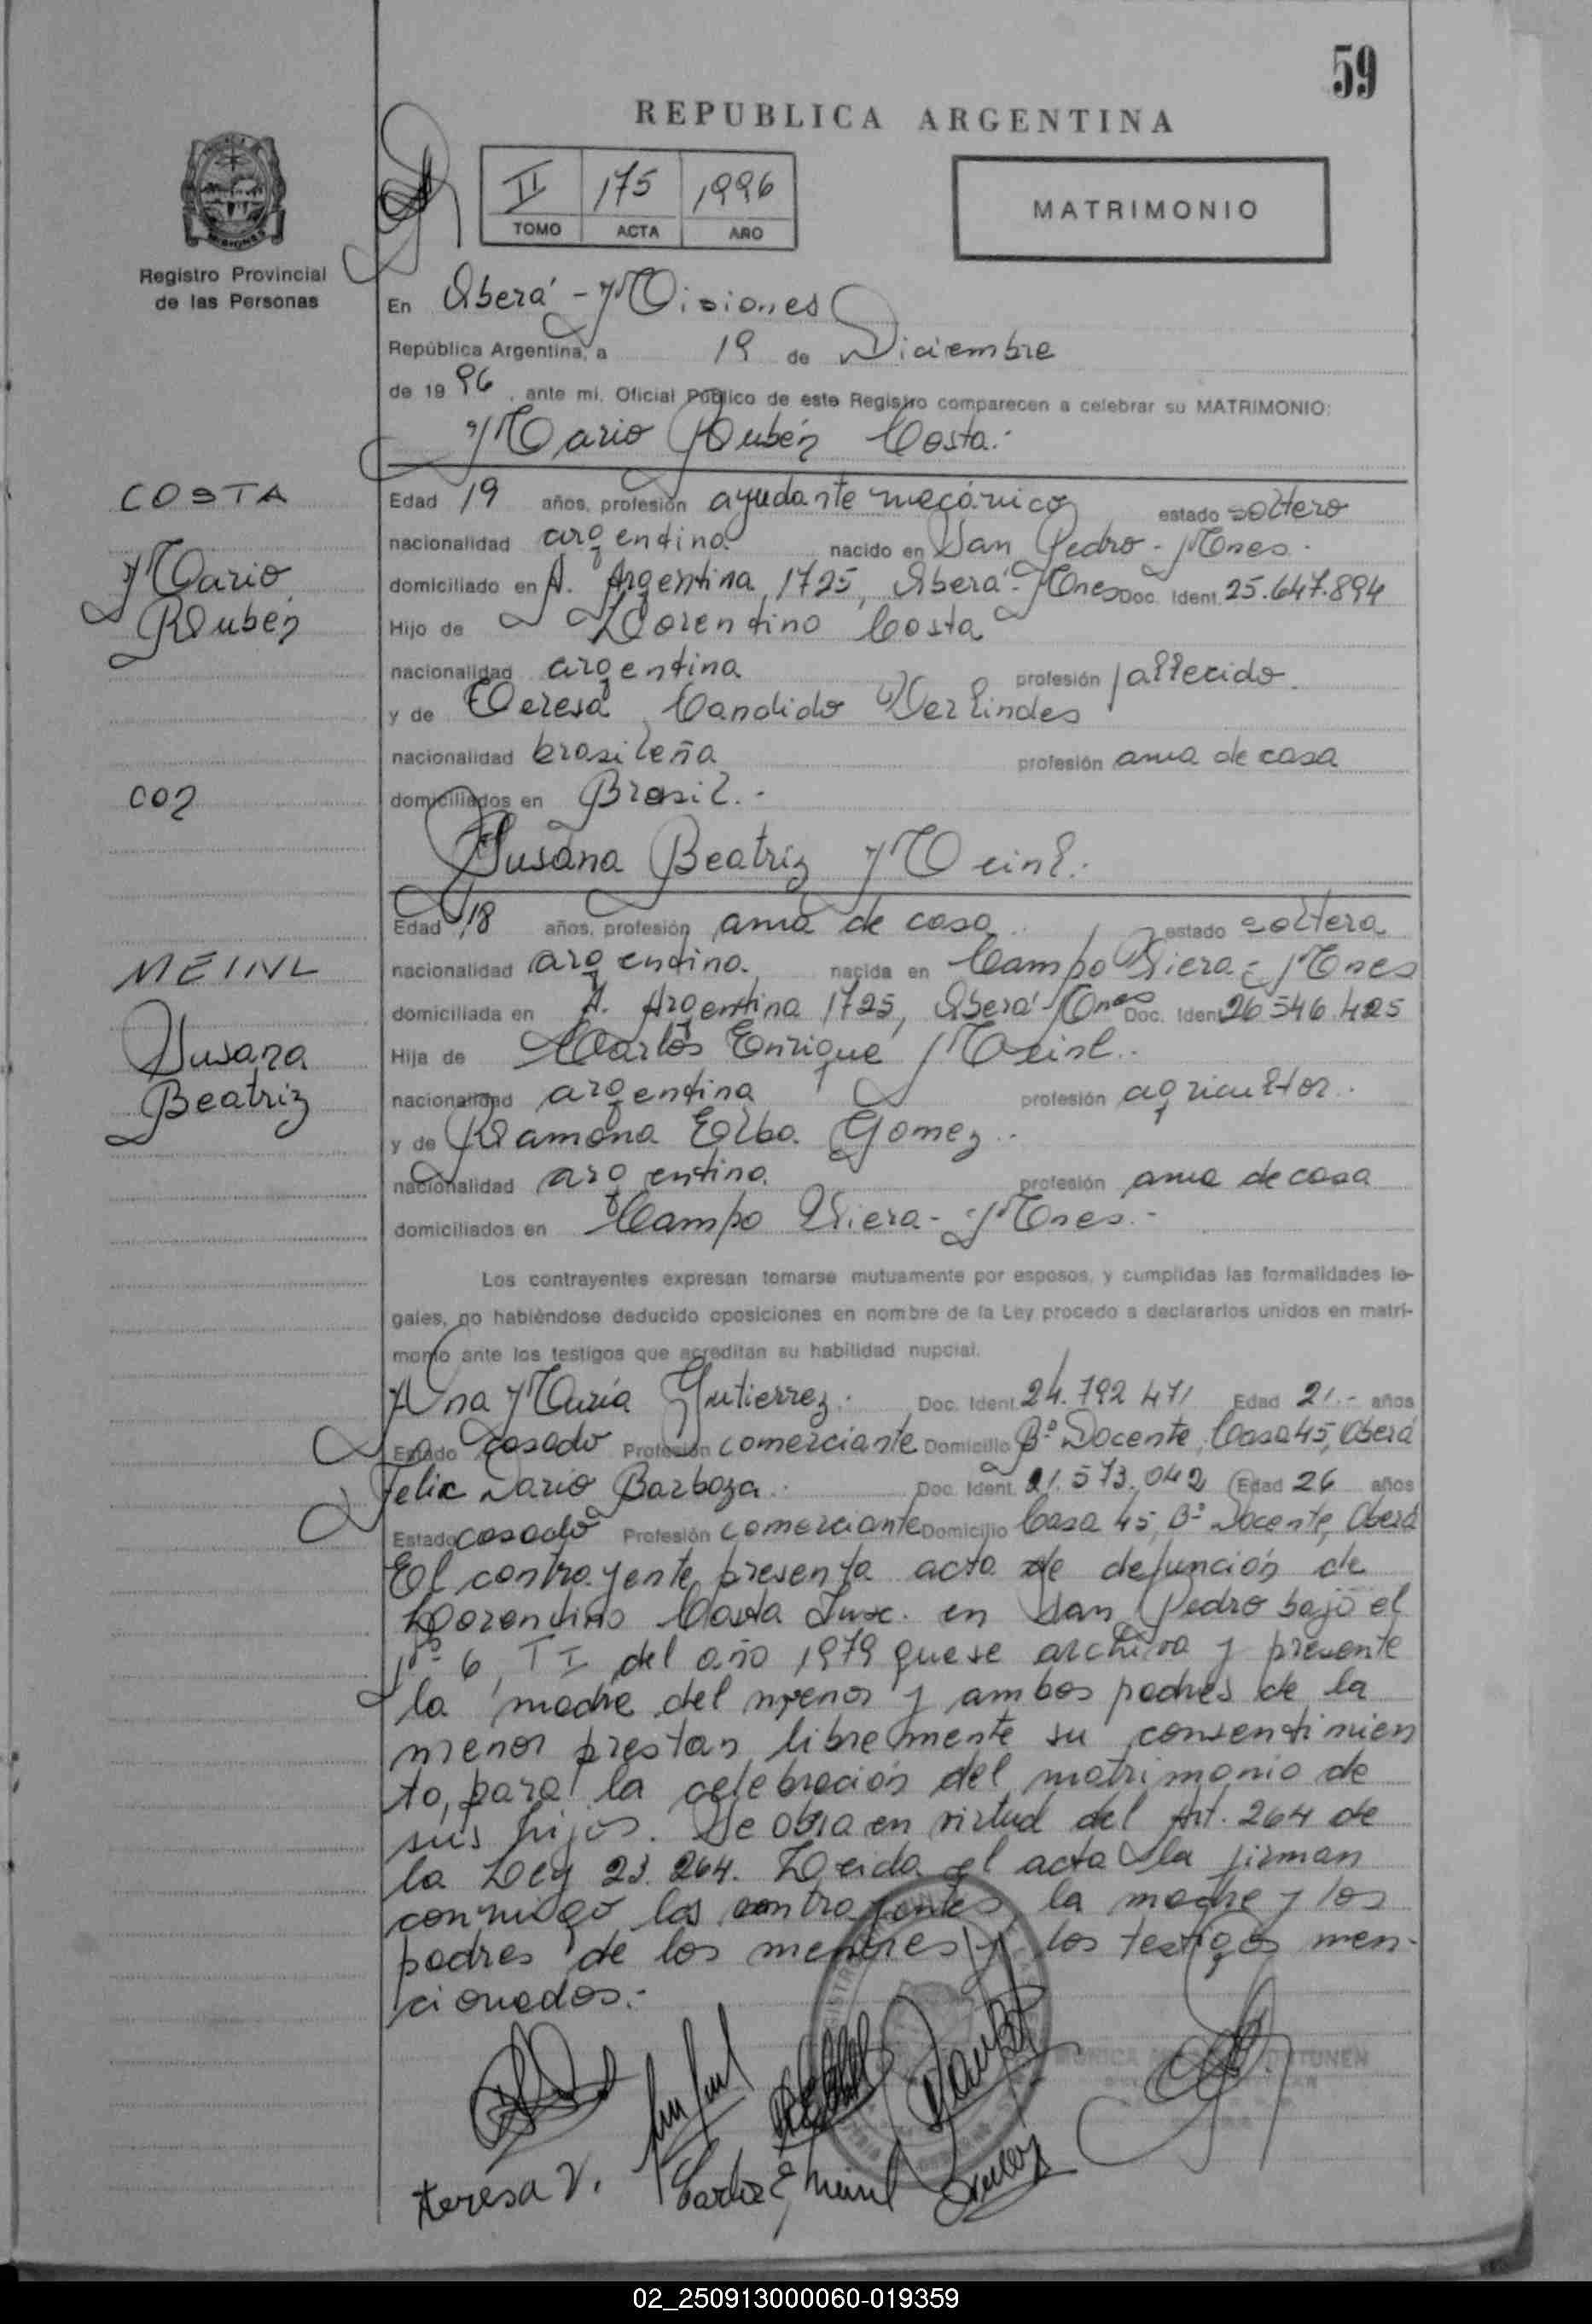 59
REPUBLICA ARGENTINA
II 175 1996
TOMO ACTA AÑO
MATRIMONIO
MISIONES
Registro Provincial
de las Personas
En Oberá - Misiones
República Argentina, a 19 de Diciembre
de 19 96, ante mi, Oficial Público de este Registro comparecen a celebrar su MATRIMONIO:
Mario Rubén Costa.-
COSTA
Mario
Rubén
con
MEINL
Susana
Beatriz
Edad 19 años, profesión ayudante mecánico estado soltero
nacionalidad argentina nacido en San Pedro - Mnes.
domiciliado en A. Argentina 1725, Oberá - Mnes Doc. Ident. 25.647.894
Hijo de Lorentino Costa
nacionalidad argentina profesión fallecido
y de Teresa Candido Verlindes
nacionalidad brasileña profesión ama de casa
domiciliados en Brasil.-
Susana Beatriz Meinl.-
Edad 18 años, profesión ama de casa estado soltera
nacionalidad argentina nacida en Campo Viera - Mnes
domiciliada en A. Argentina 1725, Oberá - Mnes Doc. Ident 26.546.425
Hija de Carlos Enrique Meinl.-
nacionalidad argentina profesión agricultor.
y de Ramona Elba Gomez.-
nacionalidad argentina profesión ama de casa
domiciliados en Campo Viera - Mnes.-
Los contrayentes expresan tomarse mutuamente por esposos, y cumplidas las formalidades le-
gales, no habiéndose deducido oposiciones en nombre de la Ley procedo a declararlos unidos en matri-
monio ante los testigos que acreditan su habilidad nupcial.
Ana María Gutierrez. Doc. Ident. 24.792 471 Edad 21.- años
Estado casado Profesión comerciante Domicilio Bº Docente, Casa 45, Oberá
Felix Dario Barboza. Doc. Ident. 21.573.042 Edad 26 años
Estado casado Profesión comerciante Domicilio Casa 45, Bº Docente, Oberá
El contrayente presenta acta de defunción de
Lorentino Costa Insc. en San Pedro bajo el
Nº 6, T I del año 1979 que se archiva y presente
la madre del menor y ambos padres de la
menor prestan libremente su consentimien
to, para la celebración del matrimonio de
sus hijos. Se obra en virtud del Art. 264 de
la Ley 23.264. Leida el acta la firman
conmigo los contrayentes, la madre y los
padres de los menores y los testigos men-
cionados.-
MONICA
teresa V.
Carlos E, Meinl
02_250913000060-019359